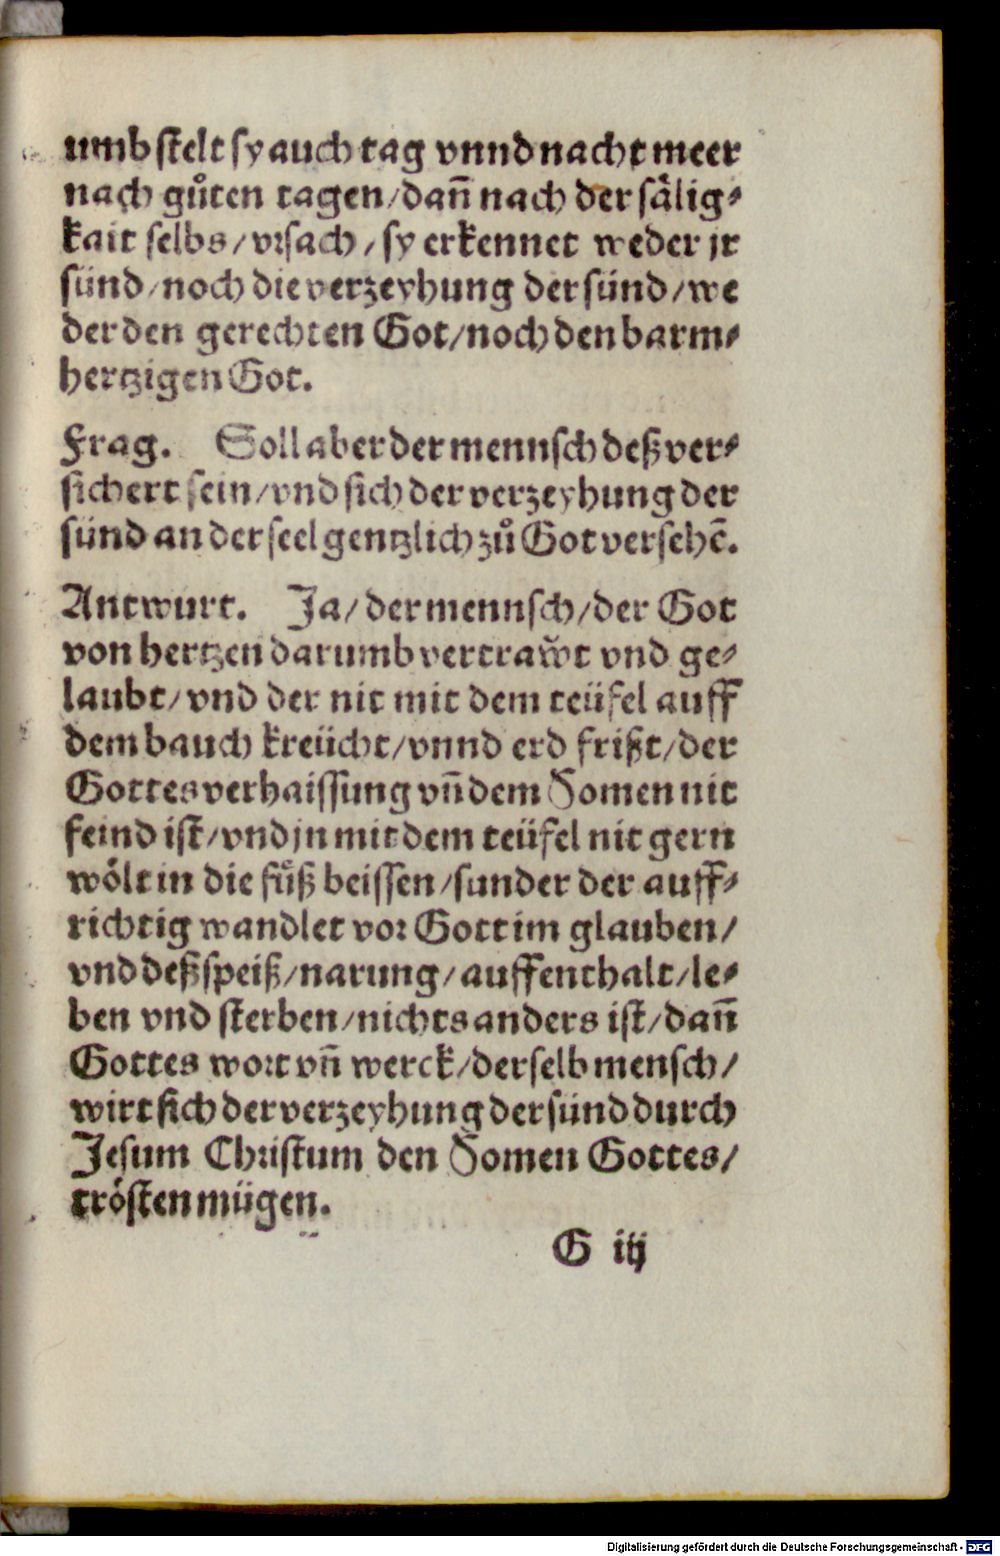 umb stelt sy auch tag vnnd nacht meer
nach gůten tagen/dann̄ nach der sälig⸗
kait selbs/vrsach/sy erkennet weder jr
sünd/noch die verzeyhung der sünd/we
der den gerechten Got/noch den barm⸗
hertzigen Got.
Frag. Soll aber der mennsch deß ver⸗
sichert sein/vnd sich der verzeyhung der
sünd an der seel gentzlich zů Got versehē.
Antwurt. Ja/der mennsch/der Got
von hertzen darumb vertraw̆t vnd ge⸗
laubt/vnd der nit mit dem teüfel auff
dem bauch kreücht/vnnd erd frißt/der
Gottes verhaissung vn̄ dem Somen nit
feind ist/vnd jn mit dem teüfel nit gern
wölt in die fůß beissen/sunder der auff⸗
richtig wandlet vor Gott im glauben/
vnd deß speiß/narung/auffenthalt/le⸗
ben vnd sterben/nichts anders ist/dann̄
Gottes wort vn̄ werck/der selb mensch/
wirt sich der verzeyhung der sünd durch
Jesum Christum den Somen Gottes/
trösten mügen.
G iij
Digitalisierung gefördert durch die Deutsche Forschungsgemeinschaft - DFG